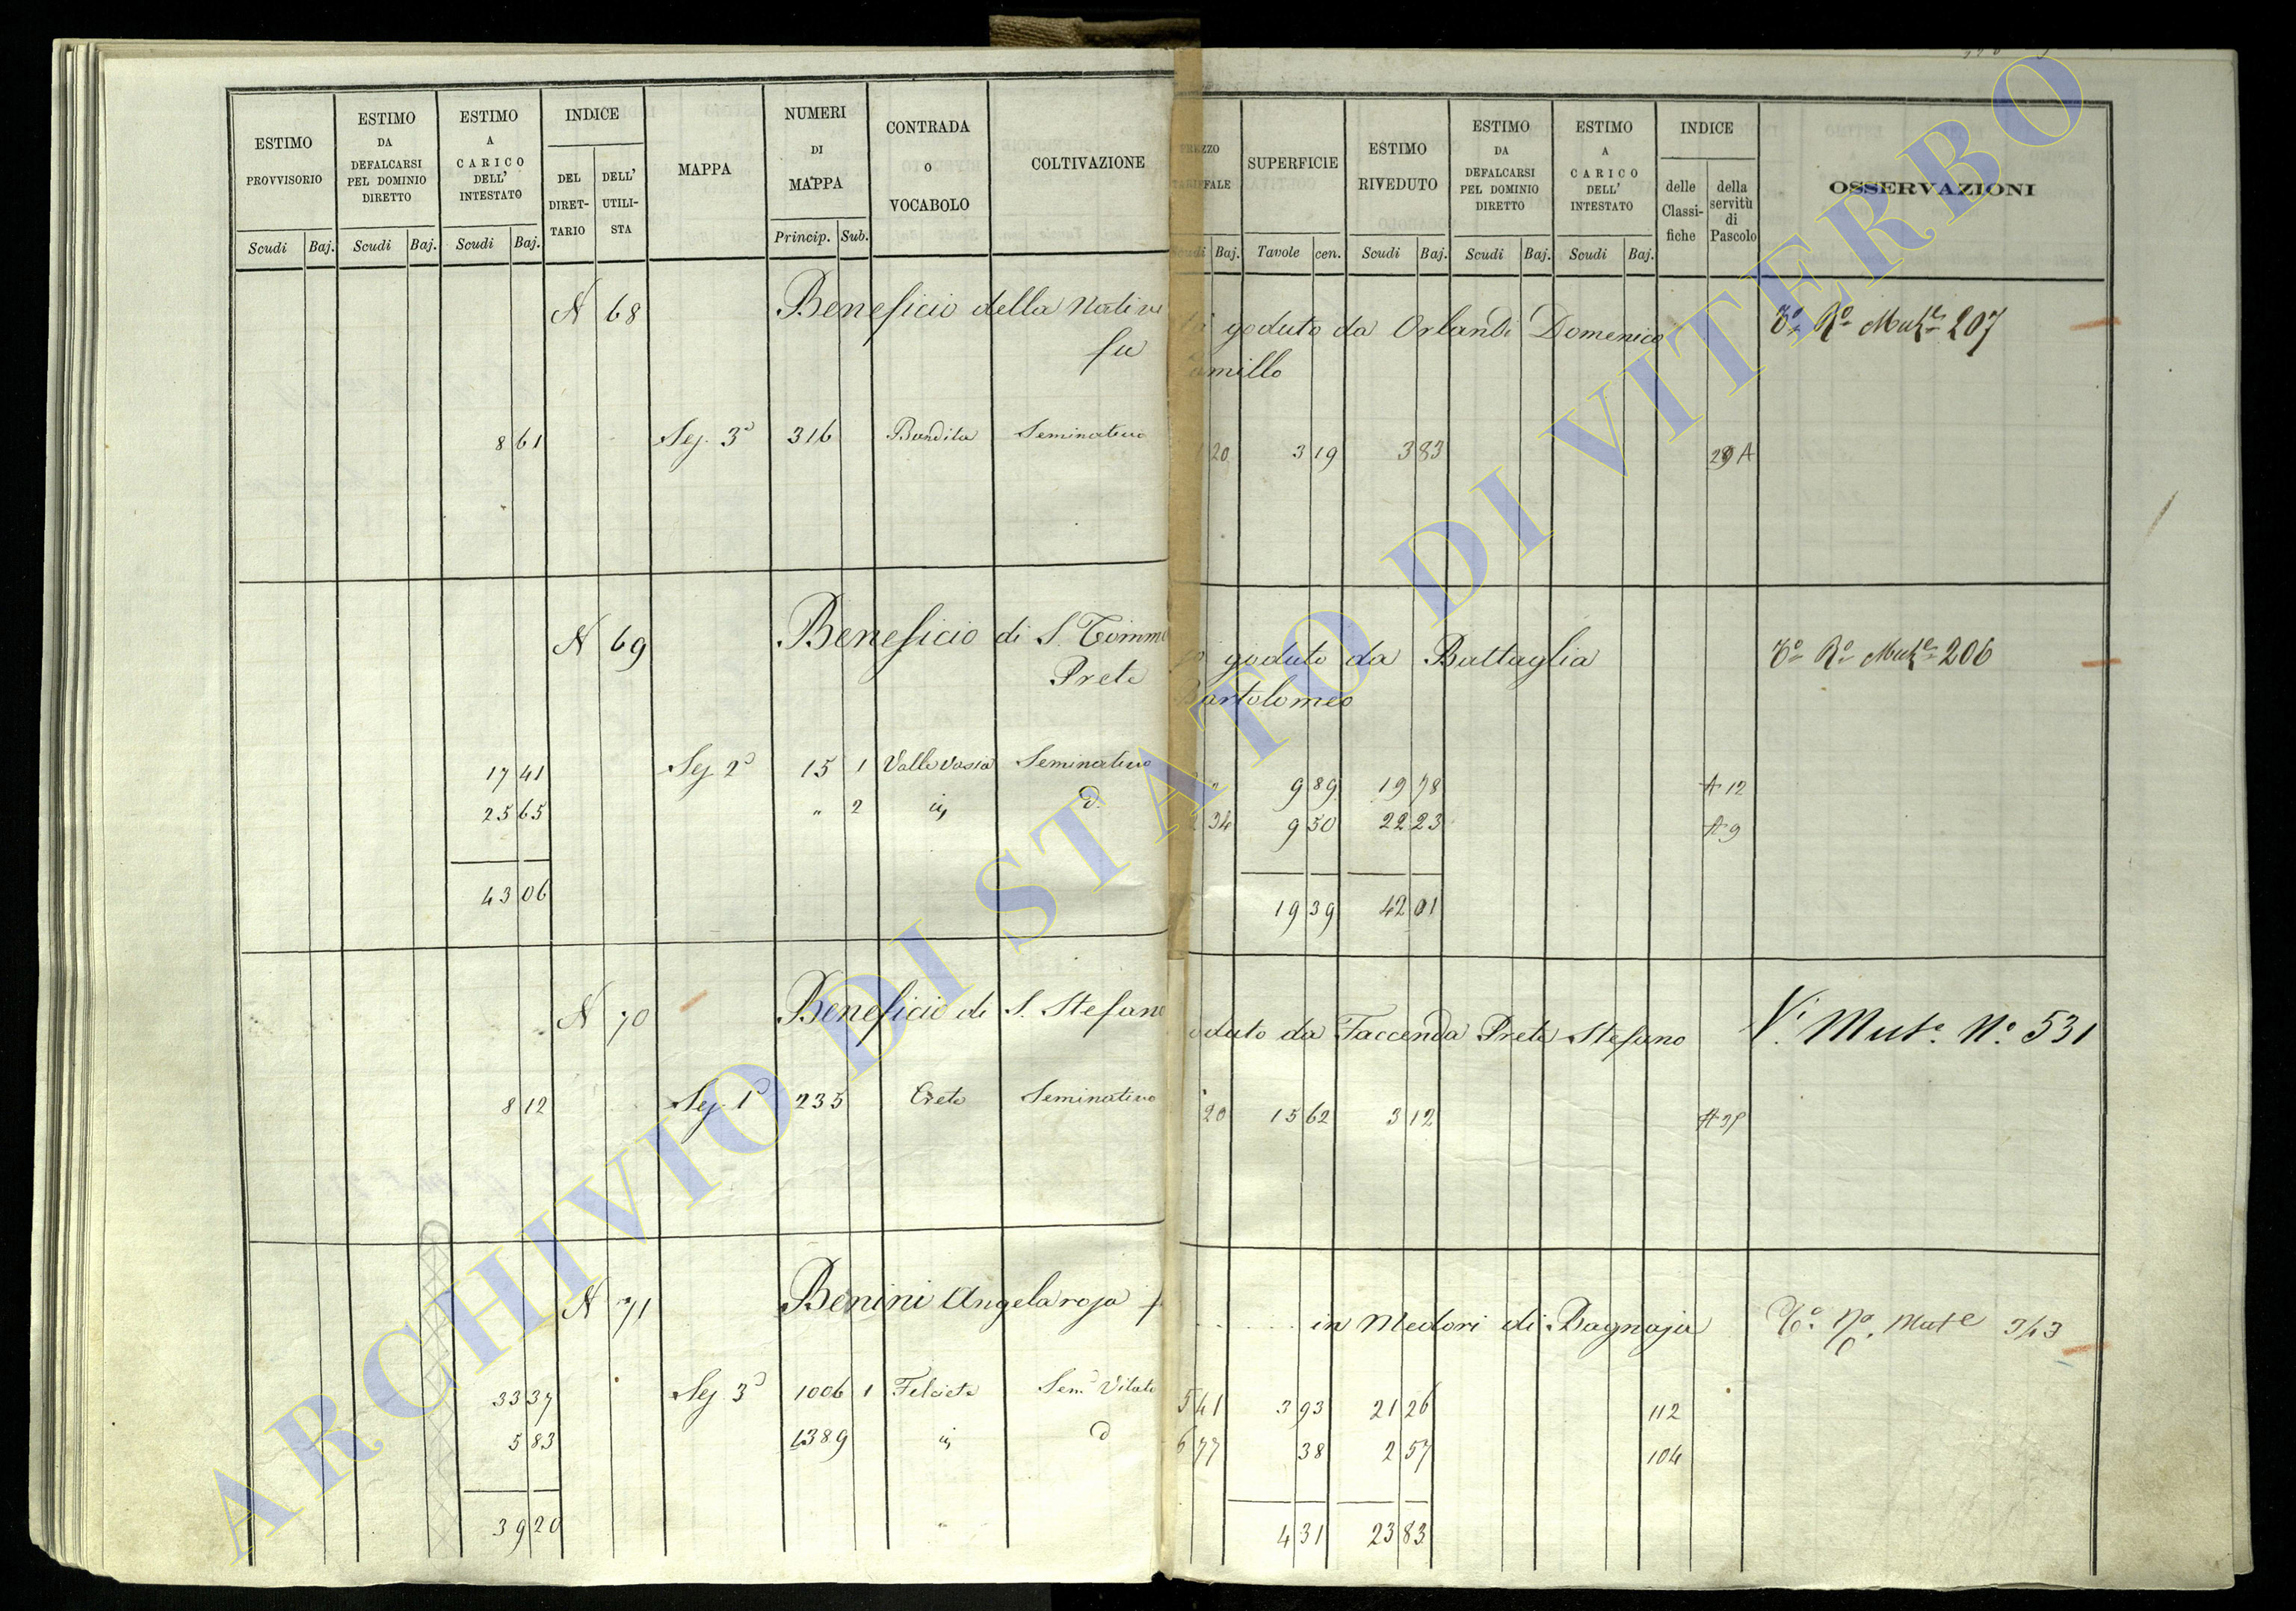 ESTIMO PROVVISORIO
ESTIMO DA DEFALCARSI PEL DOMINIO DIRETTO
ESTIMO A CARICO DELL' INTESTATO
INDICE
DEL DIRETTARIO
DELL' UTILISTA
MAPPA
NUMERI DI MAPPA
CONTRADA O VOCABOLO
COLTIVAZIONE
PREZZO TARIFFALE
SUPERFICIE
ESTIMO RIVEDUTO
ESTIMO DA DEFALCARSI PEL DOMINIO DIRETTO
ESTIMO A CARICO DELL' INTESTATO
INDICE
delle Classifiche
della servitù di Pascolo
OSSERVAZIONI
Scudi Baj. Scudi Baj. Scudi Baj. Princip. Sub. Scudi Baj. Tavole cen. Scudi Baj. Scudi Baj. Scudi Baj.
N 68 Beneficio della Nativi tà goduto da Orlandi Domenico 207
fu Camillo
8 61 Sez. 3ª 316 Bandita Seminativo 1 20 3 19 3 83 29 A
N 69 Beneficio di S. Tomma goduto da Battaglia 206
Prete Bartolomeo
17 41 Sez. 2ª 15 1 Valle Vasia Seminativo 2 9 89 19 78 A 12
25 65 " 2 id. 2 34 9 50 22 23 A 9
43 06 19 39 42 01
N 70 Beneficio di S. Stefano goduto da Faccenda Prete Stefano V. Mut.e N.o 531
8 12 Sez. 1ª 235 Creta Seminativo 20 15 62 3 12
N 71 Benini Angelarosa f. . . . . in Medori di Bagnaja Mut.e 343
33 37 Sez. 3ª 1006 1 Felceta Sem.o Vitato 5 41 3 93 21 26 112
5 83 1389 id. 6 77 38 2 57 104
39 20 4 31 23 83
ARCHIVIO DI STATO DI VITERBO